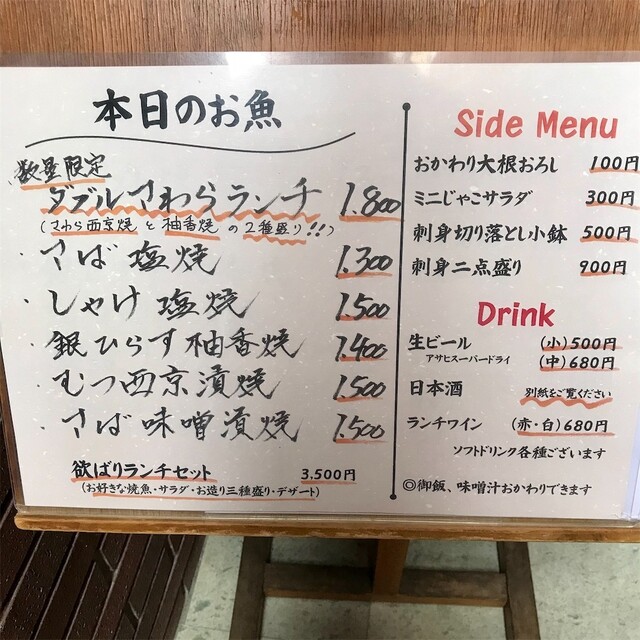 本日のお魚
数量限定
ダブルさわらランチ 1.800
(さわら西京焼と柚香焼の2種盛り!!)
・さば塩焼 1.300
・しゃけ塩焼 1.500
・銀ひらす柚香焼 1.400
・むつ西京漬焼 1.500
・さば味噌漬焼 1.500
欲ばりランチセット 3.500円
(お好きな焼魚・サラダ・お造り三種盛り・デザート)
Side Menu
おかわり大根おろし 100円
ミニじゃこサラダ 300円
刺身切り落とし小鉢 500円
刺身二点盛り 900円
Drink
生ビール (小)500円
アサヒスーパードライ (中)680円
日本酒 別紙をご覧ください
ランチワイン (赤・白)680円
ソフトドリンク各種ございます
◎御飯、味噌汁おかわりできます